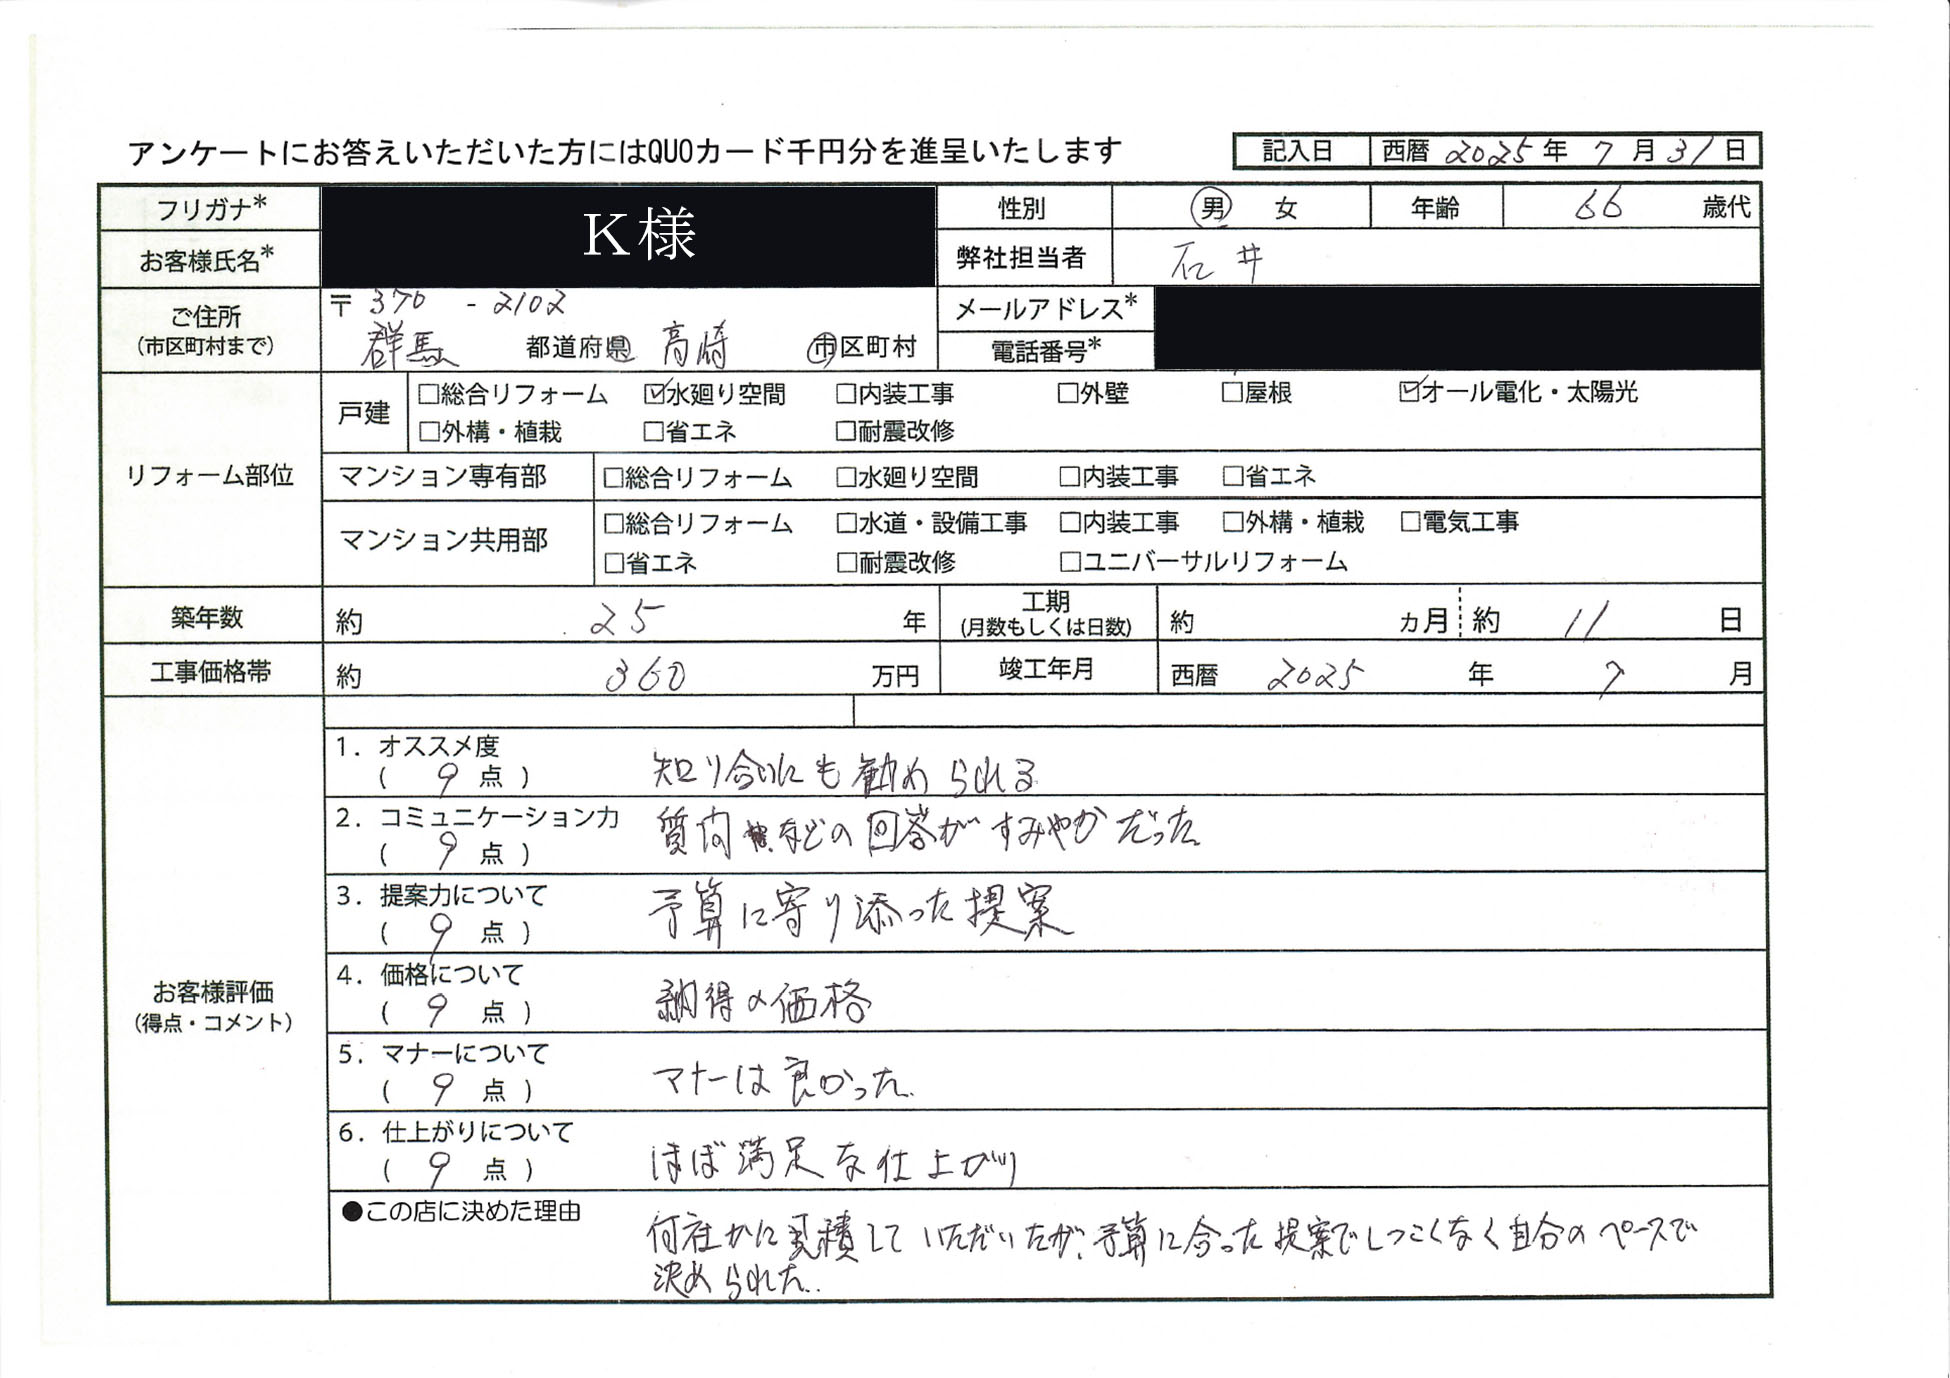 アンケートにお答えいただいた方にはQUOカード千円分を進呈いたします
記入日 西暦 2025 年 7 月 31 日
フリガナ* K様 性別 男 女 年齢 66 歳代
お客様氏名* 弊社担当者 石井
ご住所 (市区町村まで) 〒370-2102 メールアドレス*
群馬 都道府県 高崎 市区町村 電話番号*
リフォーム部位
戸建 □総合リフォーム ☑水廻り空間 □内装工事 □外壁 □屋根 ☑オール電化・太陽光
□外構・植栽 □省エネ □耐震改修
マンション専有部 □総合リフォーム □水廻り空間 □内装工事 □省エネ
マンション共用部 □総合リフォーム □水道・設備工事 □内装工事 □外構・植栽 □電気工事
□省エネ □耐震改修 □ユニバーサルリフォーム
築年数 約 25 年 工期 (月数もしくは日数) 約 カ月 約 11 日
工事価格帯 約 360 万円 竣工年月 西暦 2025 年 7 月
お客様評価
(得点・コメント)
1. オススメ度
( 9 点 ) 知り合いにも勧められる
2. コミュニケーション力
( 9 点 ) 質問などの回答がすみやかだった
3. 提案力について
( 9 点 ) 予算に寄り添った提案
4. 価格について
( 9 点 ) 納得の価格
5. マナーについて
( 9 点 ) マナーは良かった.
6. 仕上がりについて
( 9 点 ) ほぼ満足な仕上がり
●この店に決めた理由
何社かに見積していただいたが、予算に合った提案でしつこくなく自分のペースで
決められた.